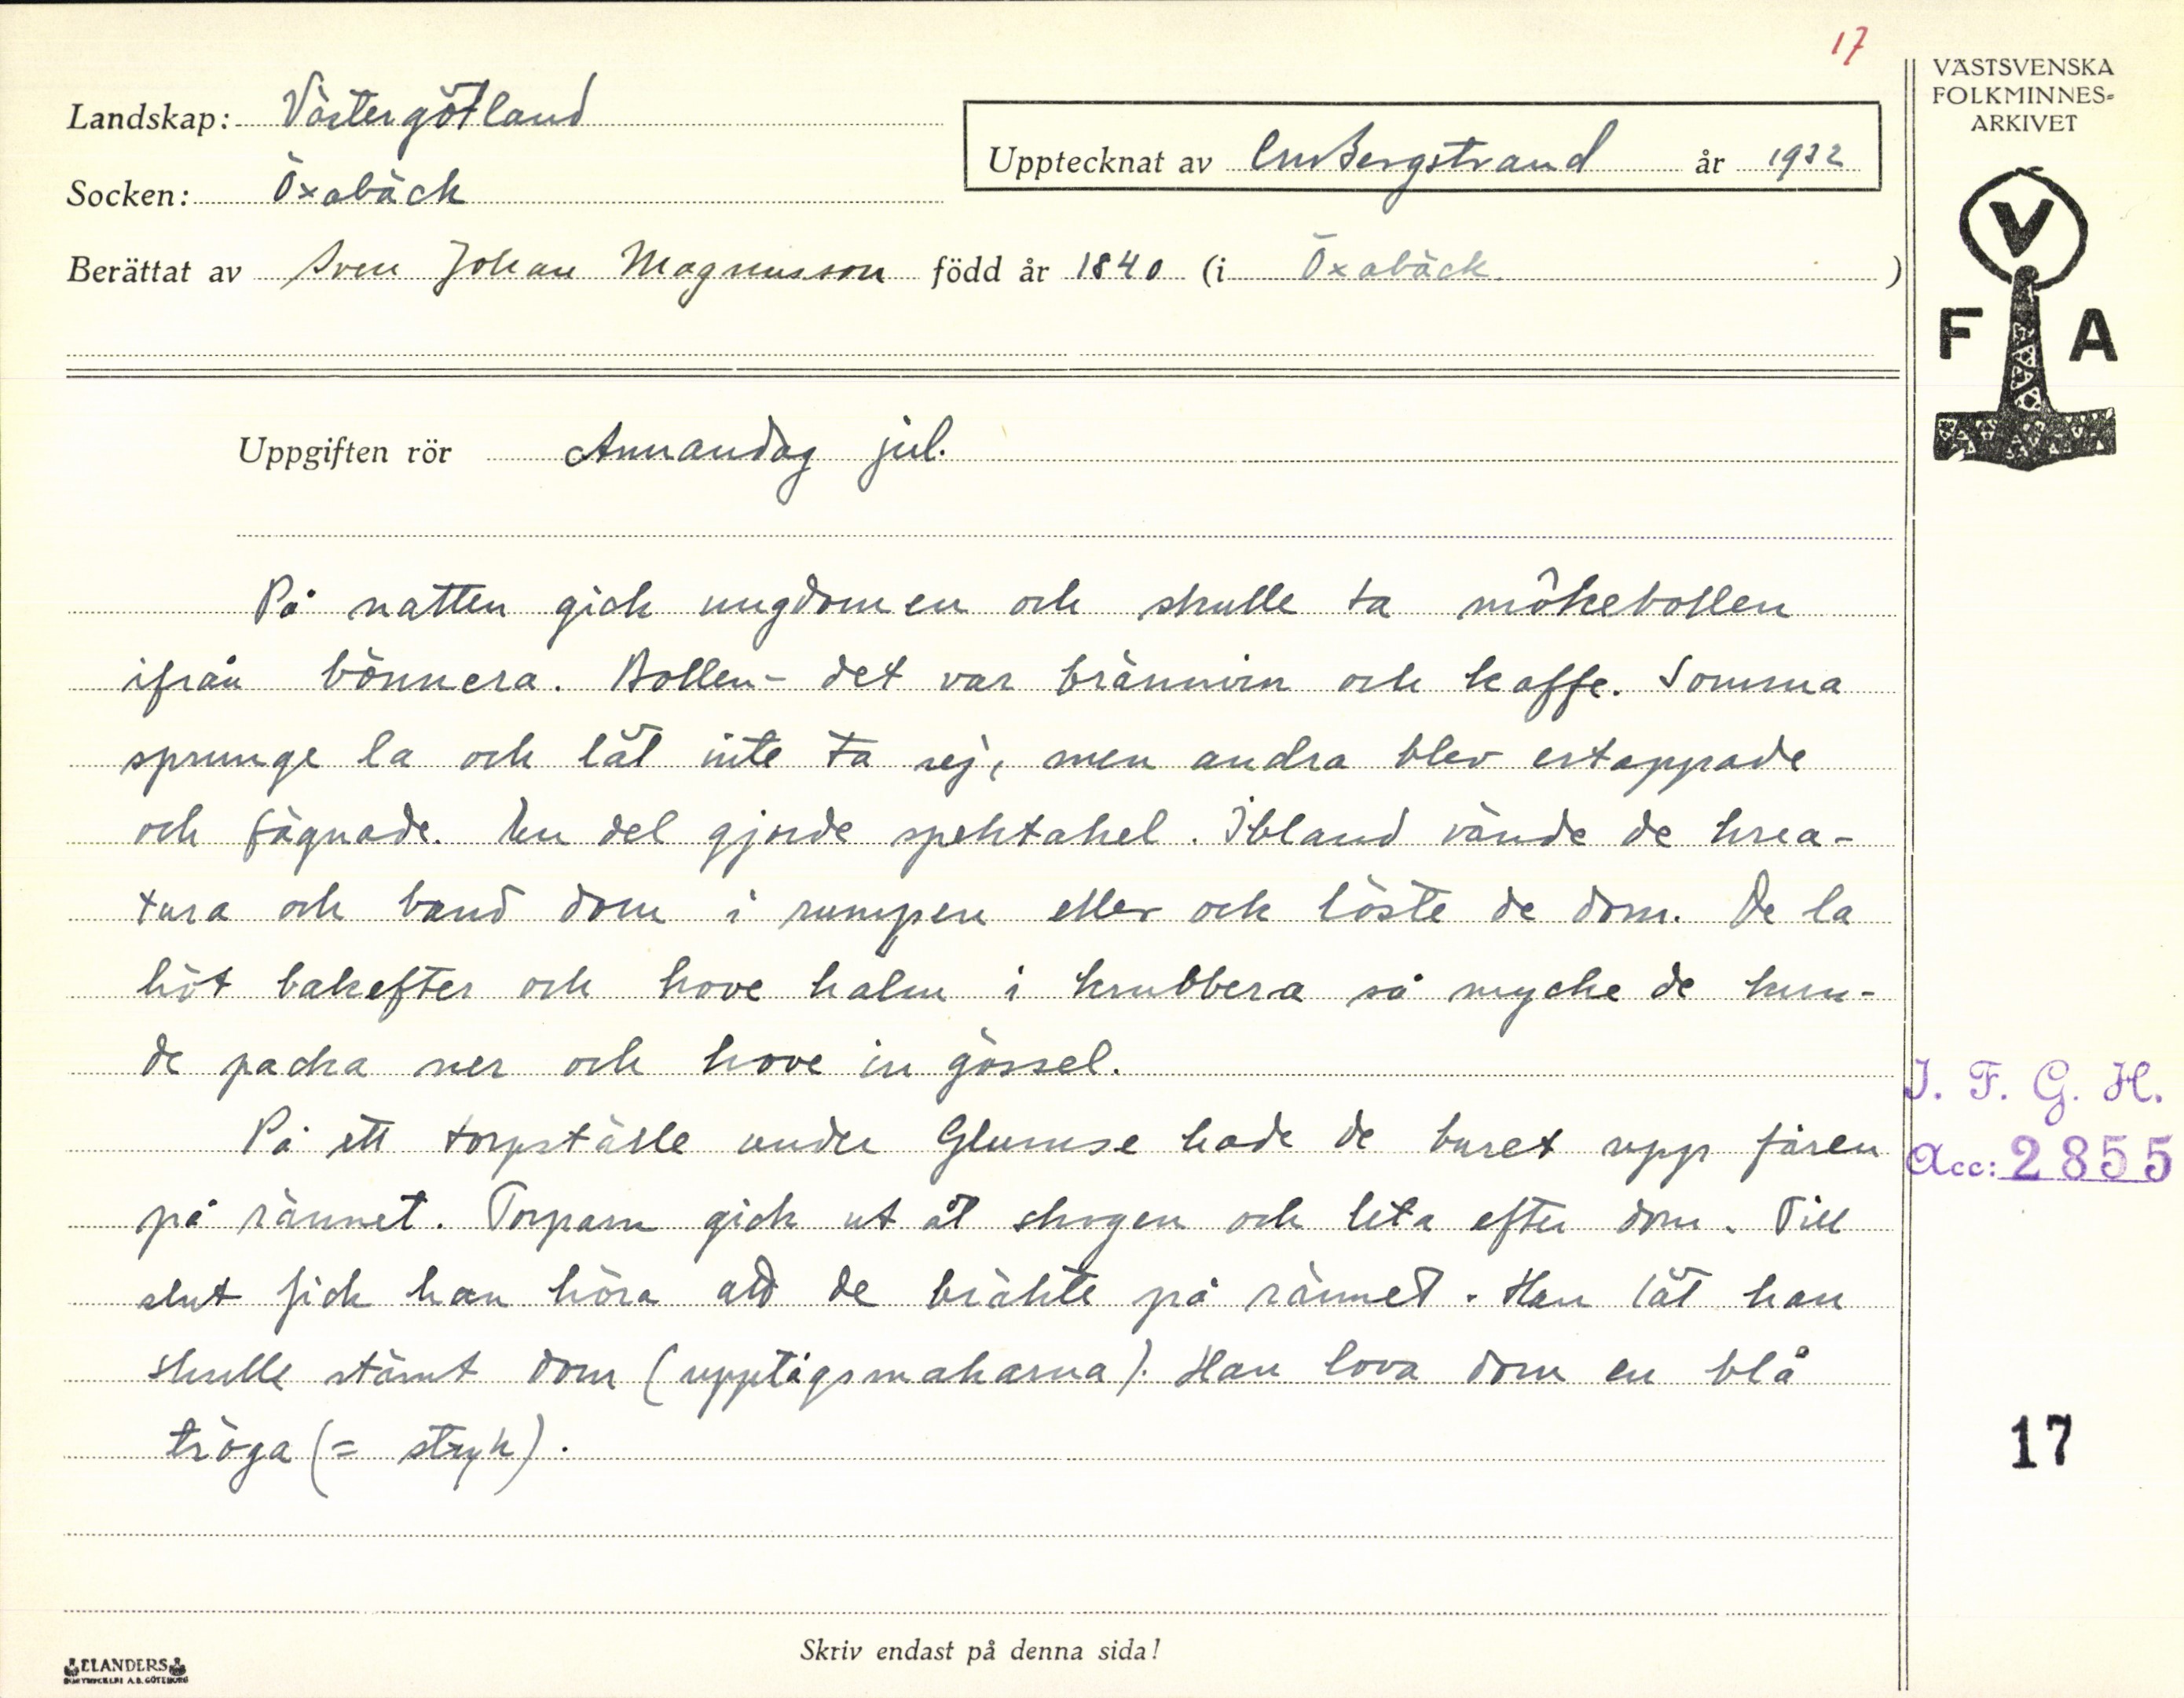 17
VÄSTSVENSKA
FOLKMINNES-
ARKIVET
Landskap: Västergötland
Upptecknat av CM Bergstrand år 1932
Socken: Öxabäck
Berättat av Sven Johan Magnusson född år 1840 (i Öxabäck.)
V
F A
Uppgiften rör Annandag jul.
På natten gick ungdomen och skulle ta mökebollen
ifrån bönnera. Bollen - det var brännvin och kaffe. Somma
sprunge la och lät inte ta sej, men andra blev ertappade
och fägnade. En del gjorde spektakel. Ibland vände de krea-
tura och band dom i rumpen eller och löste de dom. De la
höt bakefter och hove halm i krubbera så mycke de kun-
de packa ner och hove in gössel.
På ett torpställe under Glumse hade de buret upp fåren
på rännet. Torparn gick ut åt skogen och leta efter dom. Till
slut fick han höra att de bräkte på rännet. Han lät han
skulle stämt dom (upptågsmakarna). Han lova dom en blå
tröga (= stryk).
I. F. G. H.
Acc: 2855
17
Skriv endast på denna sida!
ELANDERS
BOKTRYCKERI A.B. GÖTEBORG